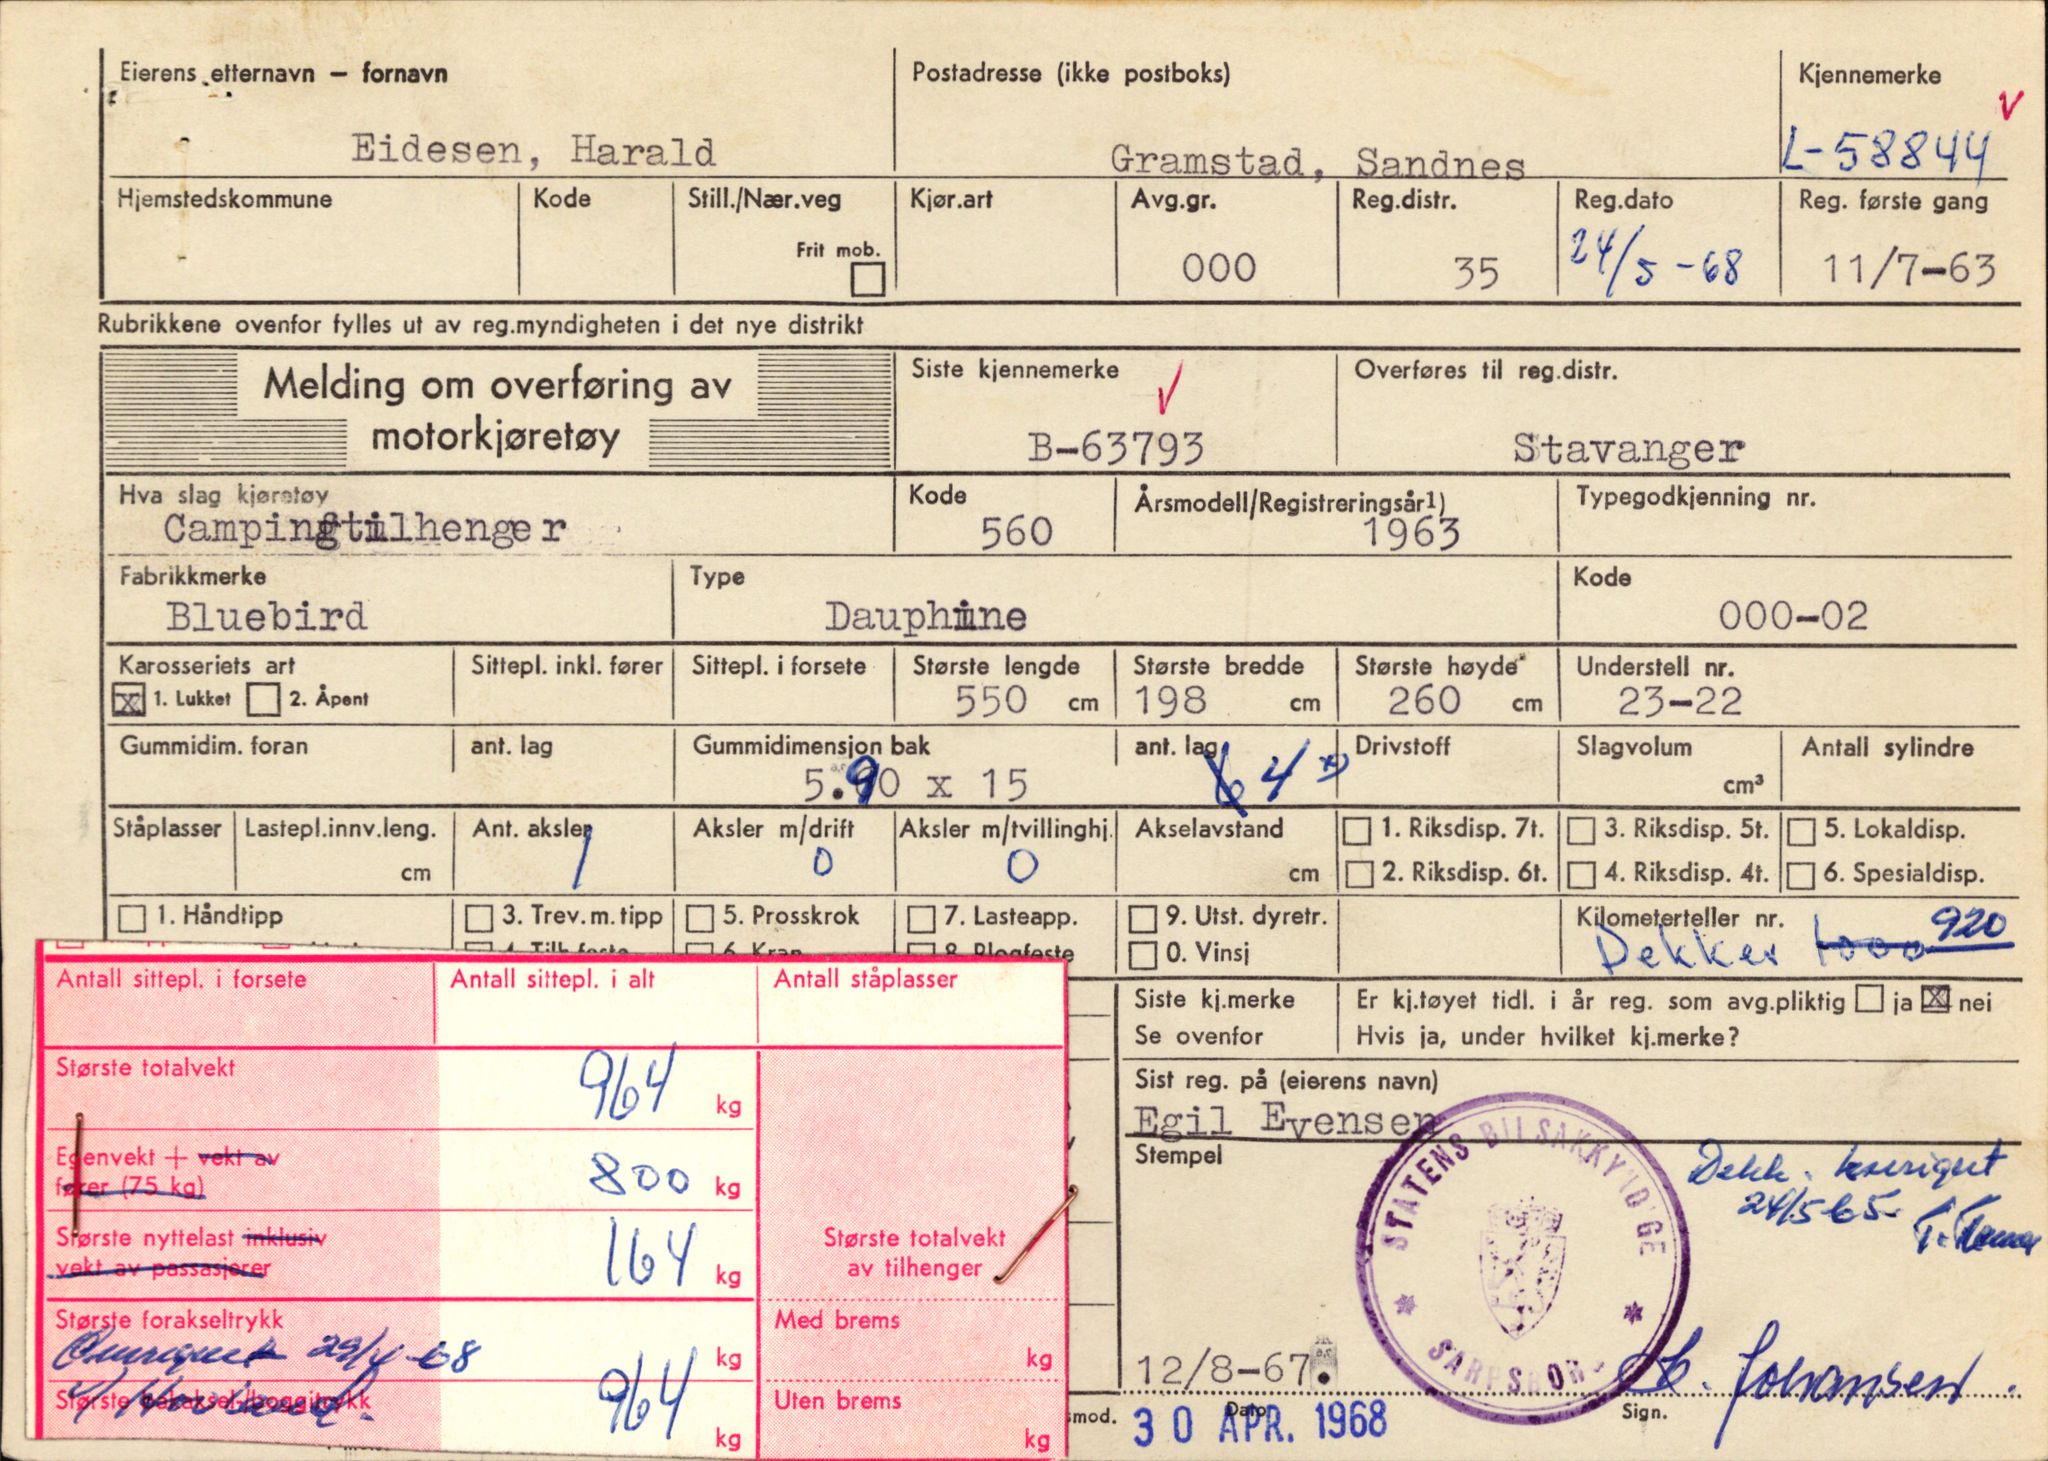 Eierens etternavn – fornavn
Eidesen, Harald
Postadresse (ikke postboks)
Gramstad, Sandnes
Kjennemerke
L-58844
Hjemstedskommune
Kode
Still./Nær.veg
Frit mob.
Kjør.art
Avg.gr.
000
Reg.distr.
35
Reg.dato
24/5-68
Reg. første gang
11/7-63
Rubrikkene ovenfor fylles ut av reg.myndigheten i det nye distrikt
Melding om overføring av
motorkjøretøy
Siste kjennemerke
B-63793
Overføres til reg.distr.
Stavanger
Hva slag kjøretøy
Campingtilhenger
Kode
560
Årsmodell/Registreringsår1)
1963
Typegodkjenning nr.
Fabrikkmerke
Bluebird
Type
Dauphine
Kode
000-02
Karosseriets art
x 1. Lukket 2. Åpent
Sittepl. inkl. fører
Sittepl. i forsete
Største lengde
550 cm
Største bredde
198 cm
Største høyde
260 cm
Understell nr.
23-22
Gummidim. foran
ant. lag
Gummidimensjon bak
5.90 x 15
ant. lag
6 4 x)
Drivstoff
Slagvolum
cm³
Antall sylindre
Ståplasser
Lastepl.innv.leng.
cm
Ant. aksler
1
Aksler m/drift
0
Aksler m/tvillinghj.
0
Akselavstand
cm
1. Riksdisp. 7t.
3. Riksdisp. 5t.
5. Lokaldisp.
2. Riksdisp. 6t.
4. Riksdisp. 4t.
6. Spesialdisp.
1. Håndtipp
3. Trev.m.tipp
5. Prosskrok
7. Lasteapp.
9. Utst. dyretr.
4. Tilh.feste
6. Kran
8. Plogfeste
0. Vinsj
Kilometerteller nr.
Dekker 1000 920
Antall sittepl. i forsete
Antall sittepl. i alt
Antall ståplasser
Største totalvekt
964 kg
Egenvekt + vekt av
fører (75 kg)
800 kg
Største nyttelast inklusiv
vekt av passasjerer
164 kg
Største totalvekt
av tilhenger
Største forakseltrykk
kg
29/4-68
Med brems
kg
964 kg
Uten brems
kg
Siste kj.merke
Se ovenfor
Er kj.tøyet tidl. i år reg. som avg.pliktig ja x nei
Hvis ja, under hvilket kj.merke?
Sist reg. på (eierens navn)
Egil Evensen
Stempel
STATENS BILSAKKYNDIGE
SARPSBORG
Dekk. korrigert
24/5-65.
12/8-67.
smod.
Dato
30 APR. 1968
Johansen.
Sign.